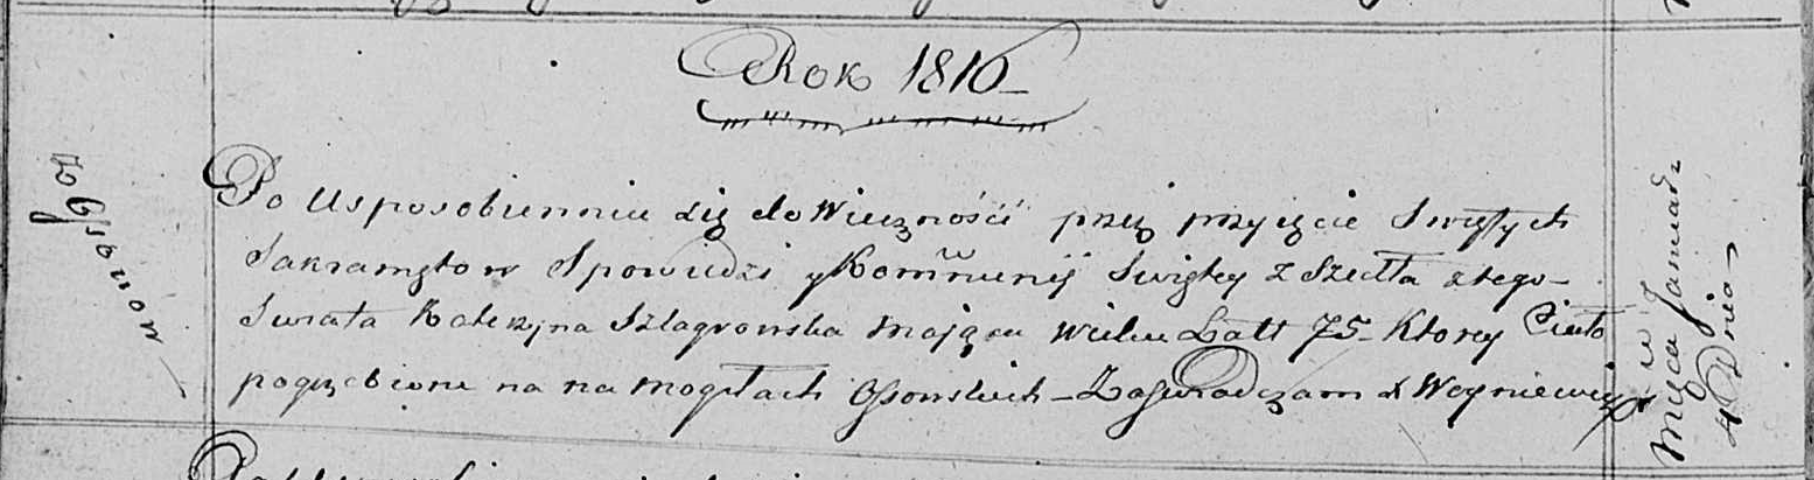 Rok 1816
z Ossonow
Po Usposobienniu się do Wieczności przez przyięcie Swiętych
Sakramętow Spowiedzi y Kommunij Swiętey z Szedła z tego
Swiata Katerzyna Szlagrowska maiąca Wieku Latt 75 Ktorey Ciało
pogrzebione na na mogiłach Ossonskich – Zaswiadczam X Woyniewicz
w
Mca Januar
4 Dnia